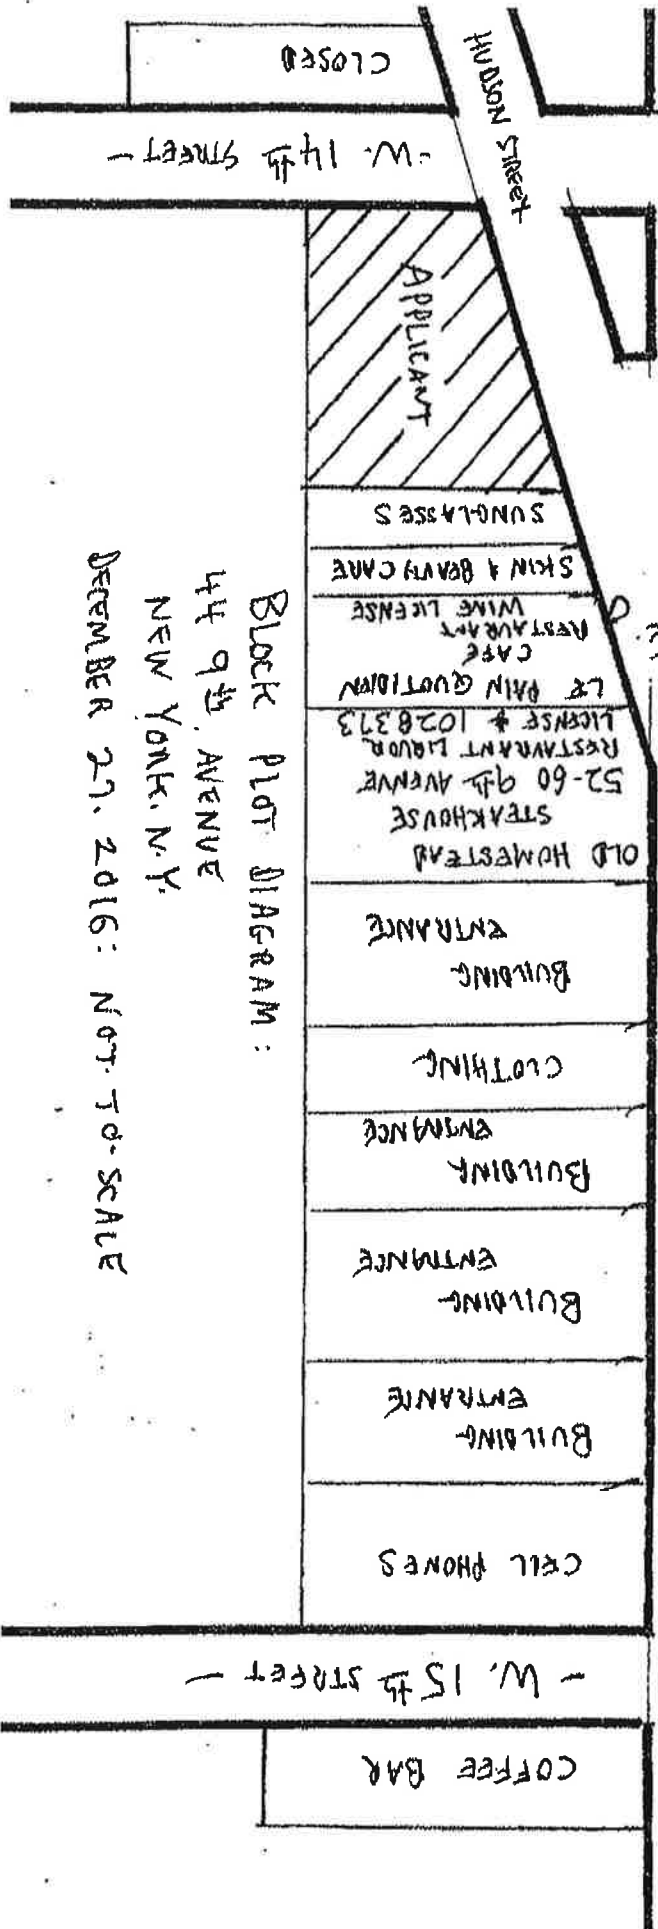 CLOSED
HUDSON STREET
- W. 14th STREET -
APPLICANT
SUNGLASSES
SKIN & BEAUTY CARE
LE PAIN QUOTIDIEN
CAFE
RESTAURANT
WINE LICENSE
OLD HOMESTEAD
STEAKHOUSE
52-60 9th AVENUE
RESTAURANT LIQUOR
LICENSE # 1028373
BUILDING
ENTRANCE
CLOTHING
BUILDING
ENTRANCE
BUILDING
ENTRANCE
BUILDING
ENTRANCE
CELL PHONES
- W. 15th STREET -
COFFEE BAR
BLOCK PLOT DIAGRAM:
44 9th AVENUE
NEW YORK, N.Y.
DECEMBER 27, 2016: NOT-TO-SCALE